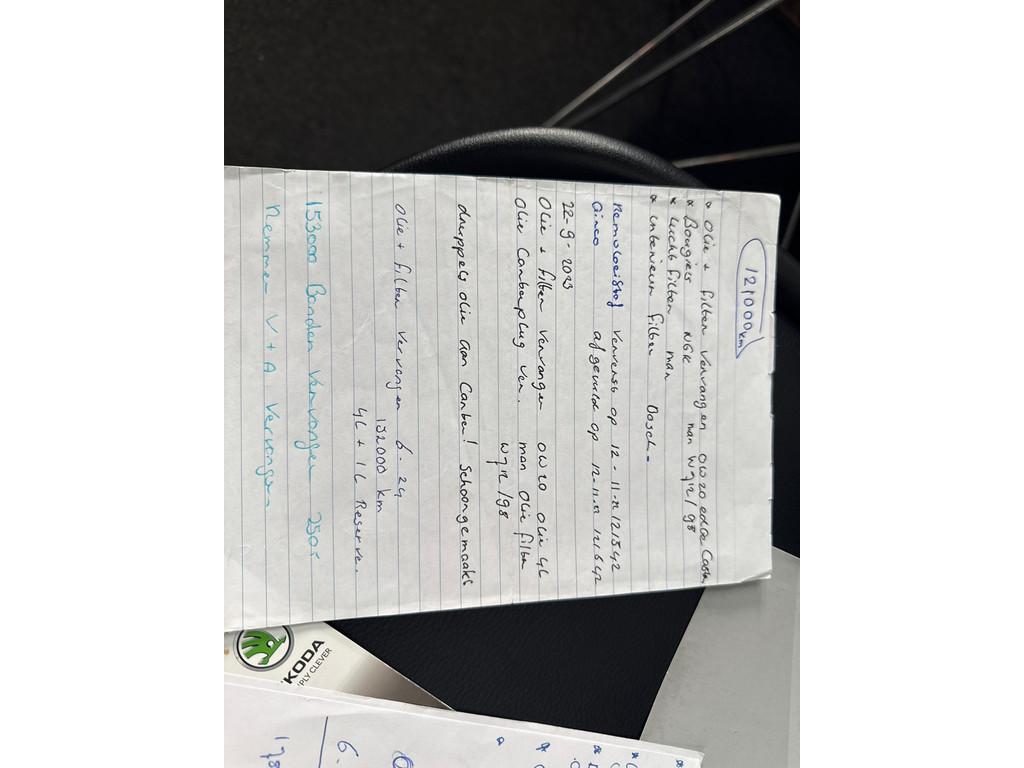 121000 km
* Olie + filter vervangen 0W20 edge Castr
* Bougies NGK man W712/98
* Lucht filter man
* interieur filter Bosch -
Remvloeistof ververst op 12-11-22 121542
afgevuld op 12-11-22 121642
22-9-2023
Olie + filter vervangen 0W20 olie 4L
Olie Carterplug ver. man olie filter
W712/98
druppels olie aan Carter! Schoongemaakt
Olie + filter vervangen 6-24
132000 km
4L + 1L Reserve.
153000 Banden vervangen
Remmen V + A vervangen
ŠKODA
SIMPLY CLEVER
6.